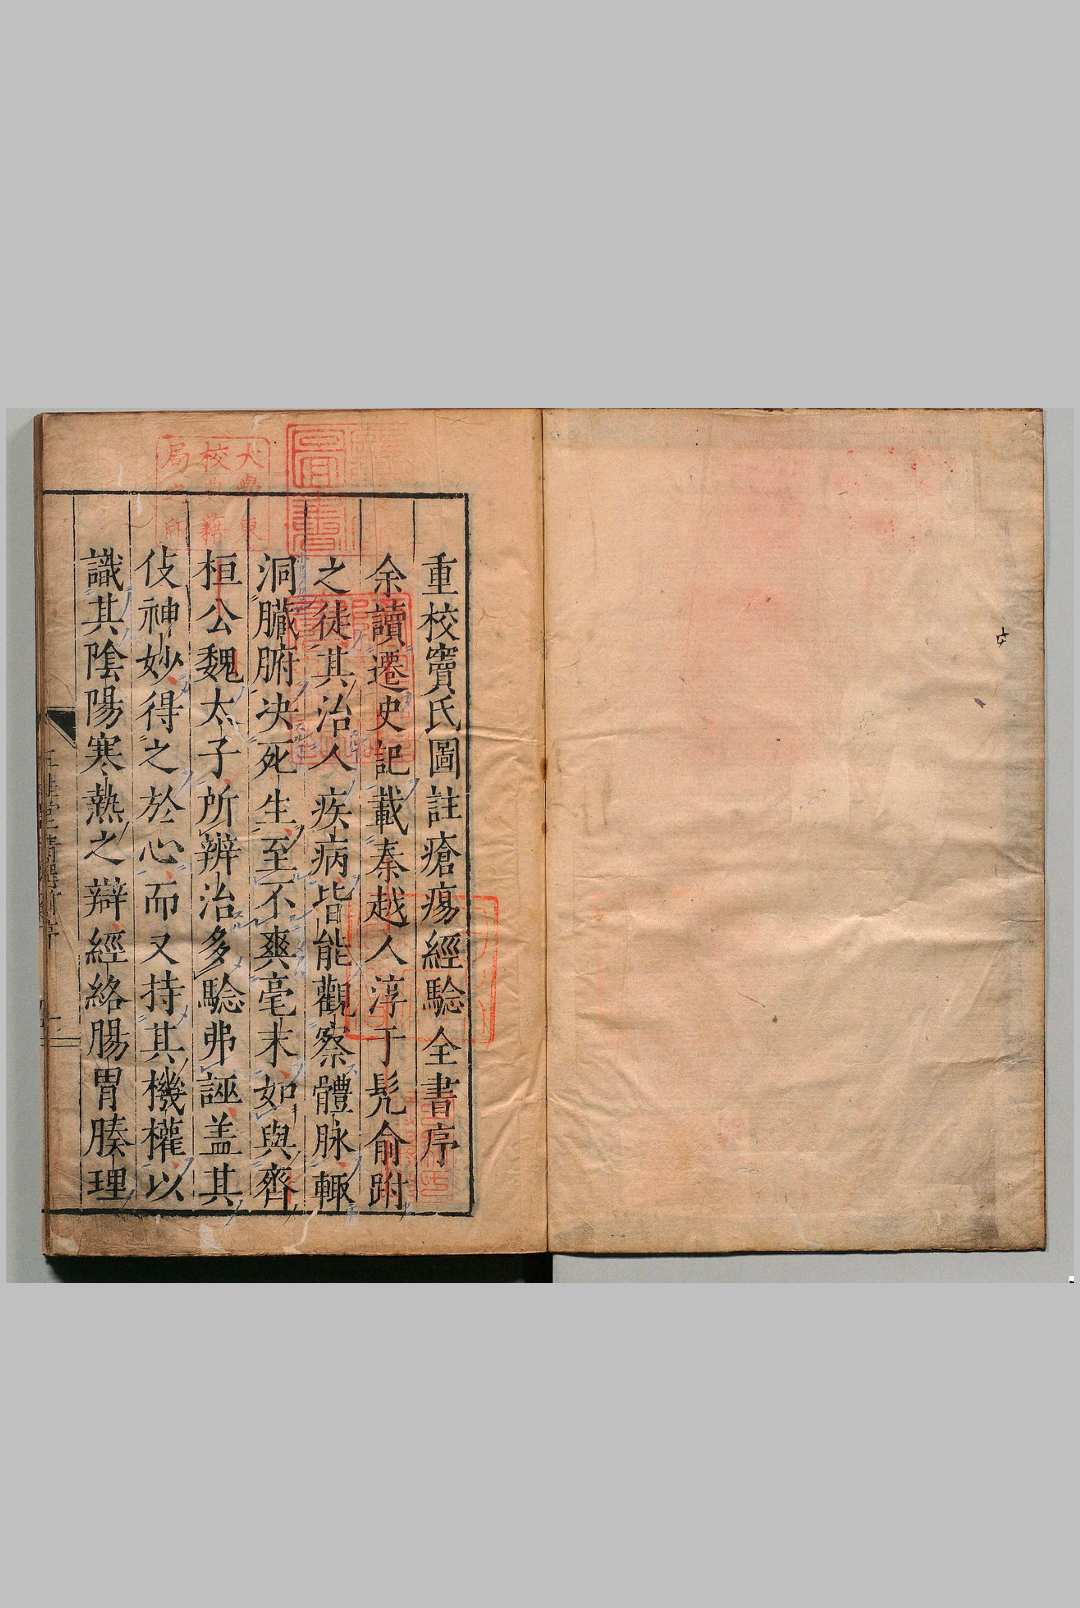 重校竇氏圖註瘡瘍經驗全書序
余讀遷史記載秦越人淳于髡俞跗
之徒其治人疾病皆能觀察體脉輒
洞臓腑决死生至不爽毫末如與齊
桓公魏太子所辨治多騐弗誣盖其
伎神妙得之於心而又持其機權以
識其隂陽寒熱之辯經絡腸胃腠理
大學東
校
局